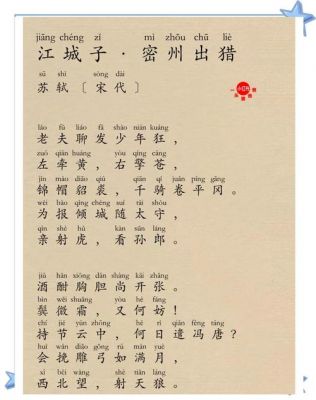 jiāng chéng zǐ mì zhōu chū liè
江城子·密州出猎
sū shì sòng dài
苏轼〔宋代〕
lǎo fū liáo fā shào nián kuáng
老夫聊发少年狂，
zuǒ qiān huáng yòu qíng cāng
左牵黄，右擎苍，
jǐn mào diāo qiú qiān qí juǎn píng gāng
锦帽貂裘，千骑卷平冈。
wèi bào qīng chéng suí tài shǒu
为报倾城随太守，
qīn shè hǔ kàn sūn láng
亲射虎，看孙郎。
jiǔ hān xiōng dǎn shàng kāi zhāng
酒酣胸胆尚开张。
bìn wēi shuāng yòu hé fáng
鬓微霜，又何妨！
chí jié yún zhōng hé rì qiǎn féng táng
持节云中，何日遣冯唐？
huì wǎn diāo gōng rú mǎn yuè
会挽雕弓如满月，
xī běi wàng shè tiān láng
西北望，射天狼。